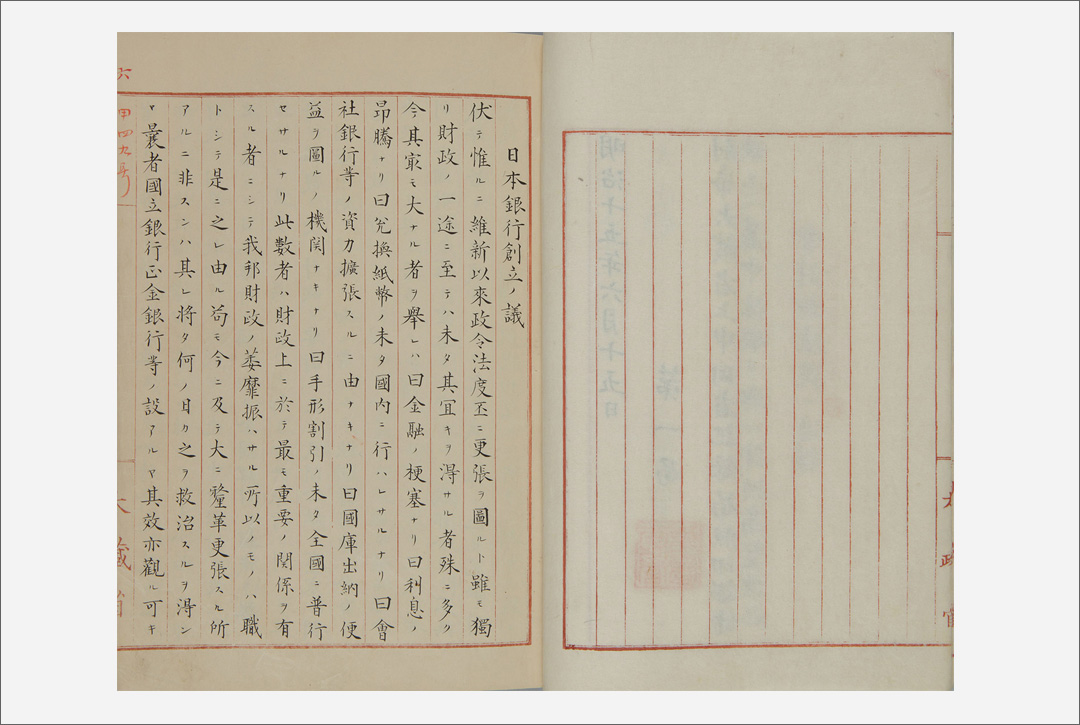 太政官
明治十五年六月十五日
第一局
日本銀行創立ノ議
伏テ惟ルニ維新以來政令法度丕ニ更張ヲ圖ルト雖モ獨
リ財政ノ一途ニ至テハ未タ其冝キヲ淂サル者殊ニ多ク
今其㝡モ大ナル者ヲ舉レハ曰金融ノ梗塞ナリ曰利息ノ
昂騰ナリ曰兌換紙幣ノ未タ國内ニ行ハレサルナリ曰會
社銀行等ノ資力擴張スルニ由ナキナリ曰國庫出納ノ便
益ヲ圖ルノ機関ナキナリ曰手形割引ノ未タ全國ニ普行
セサルナリ此數者ハ財政上ニ於テ最モ重要ノ関係ヲ有
スル者ニシテ我邦財政ノ萎靡振ハサル所以ノモノハ職
トシテ是ニ之レ由ル苟モ今ニ及テ大ニ釐革更張スル所
アルニ非スンハ其レ将タ何ノ日カ之ヲ救治スルヲ淂ン
ヤ曩者國立銀行正金銀行等ノ設アルヤ其效亦觀ル可キ
六
甲四九号
大藏省